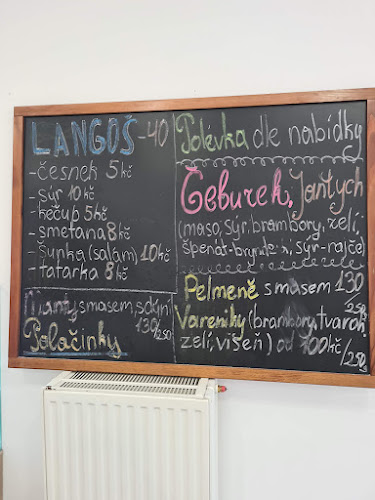 LANGOŠ -40
- česnek 5 kč
- sýr 10 kč
- kečup 5 kč
- smetana 8 kč
- šunka (salám) 10 kč
- tatarka 8 kč
Manty s masem, s dýní
130/250
Palačinky
Polévka dle nabídky
Čeburek, Jantych
(maso, sýr, brambory, zelí,
špenát-bryndza, sýr-rajče)
Pelmeně s masem 130
/250
Vareniky (brambory, tvaroh,
zelí, višeň) od 100 kč
/250